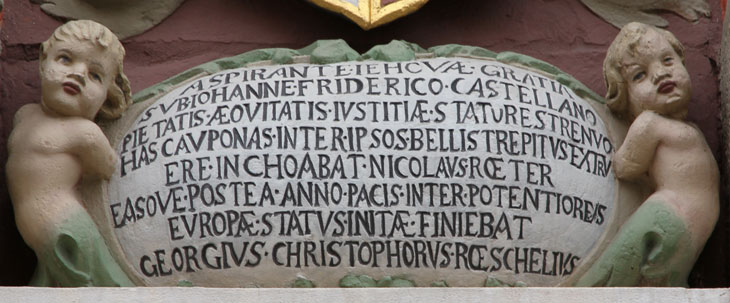 ASPIRANTE IEHOVÆ GRATIA
SVB IOHANNE·FRIDERICO·CASTELLANO
PIETATIS·ÆQVITATIS·IVSTITIÆ·STATURE STRENVO
HAS CAVPONAS·INTER·IPSOS·BELLI STREPITVS EXTRV
ERE INCHOABAT·NICOLAVS·RŒTER
EASQVE·POSTEA·ANNO·PACIS·INTER·POTENTIORES
EVROPÆ·STATVS INITÆ·FINIEBAT
GEORGIVS·CHRISTOPHORVS·RŒSCHELIVS